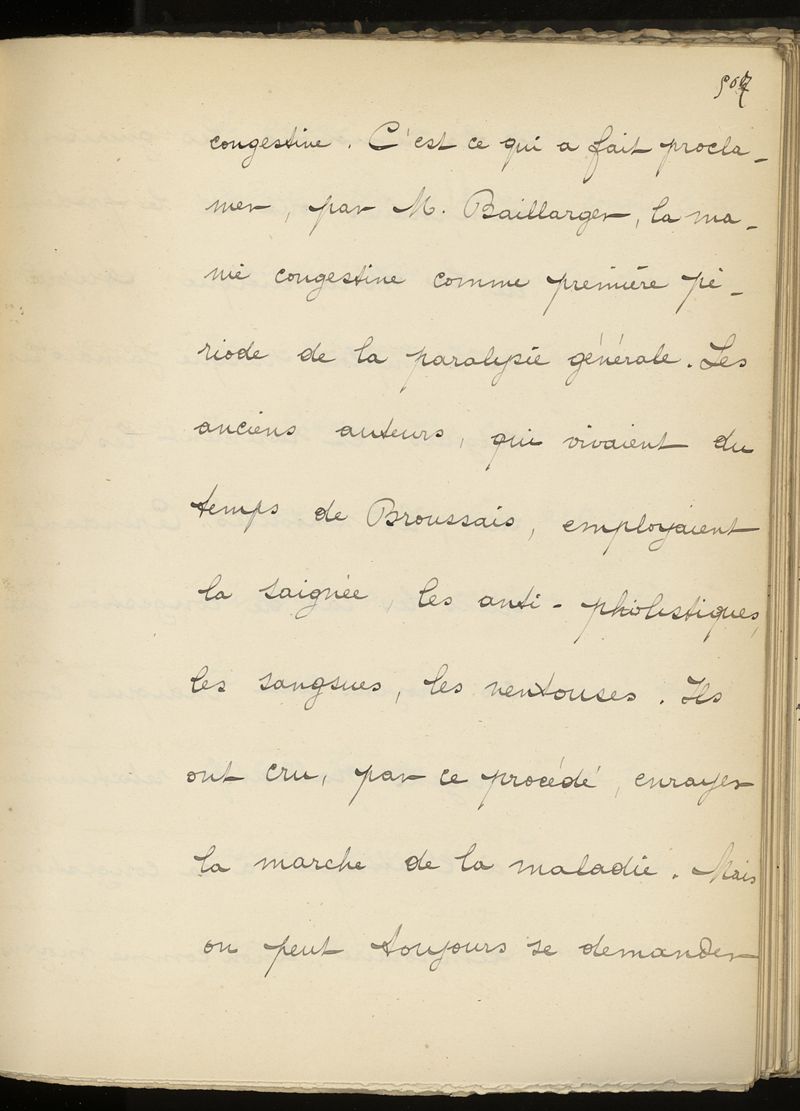 congestive. C'est ce qui a fait procla-
mer, par M. Baillarger, la ma-
nie congestive comme première pé-
riode de la paralysie générale. Les
anciens auteurs, qui vivaient du
temps de Broussais, employaient
la saignée, les anti-phlolistiques,
les sangsues, les ventouses. Ils
ont cru, par ce procédé, enrayer
la marche de la maladie. Mais
on peut toujours se demander